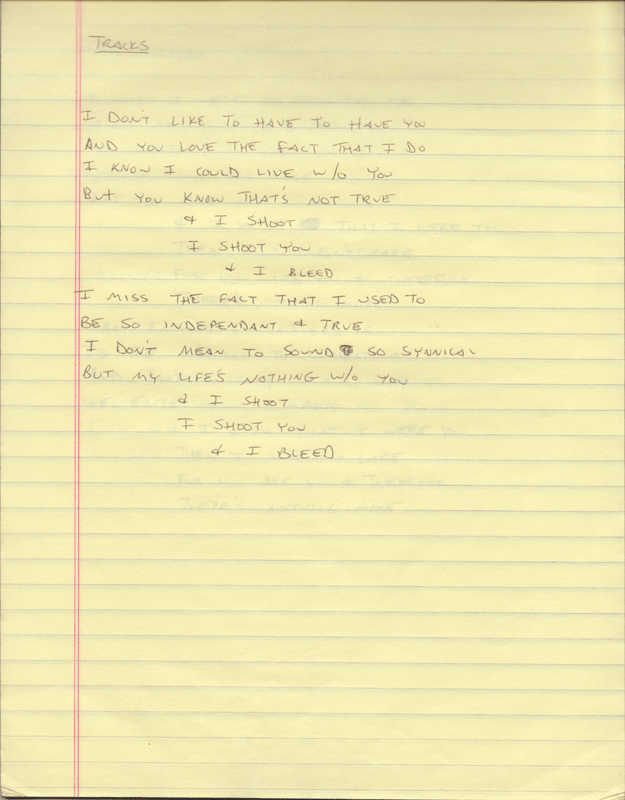 TRACKS
I DON'T LIKE TO HAVE TO HAVE YOU
AND YOU LOVE THE FACT THAT I DO
I KNOW I COULD LIVE W/O YOU
BUT YOU KNOW THAT'S NOT TRUE
& I SHOOT
I SHOOT YOU
& I BLEED
I MISS THE FACT THAT I USED TO
BE SO INDEPENDANT & TRUE
I DON'T MEAN TO SOUND SO SYNNICAL
BUT MY LIFE'S NOTHING W/O YOU
& I SHOOT
I SHOOT YOU
& I BLEED